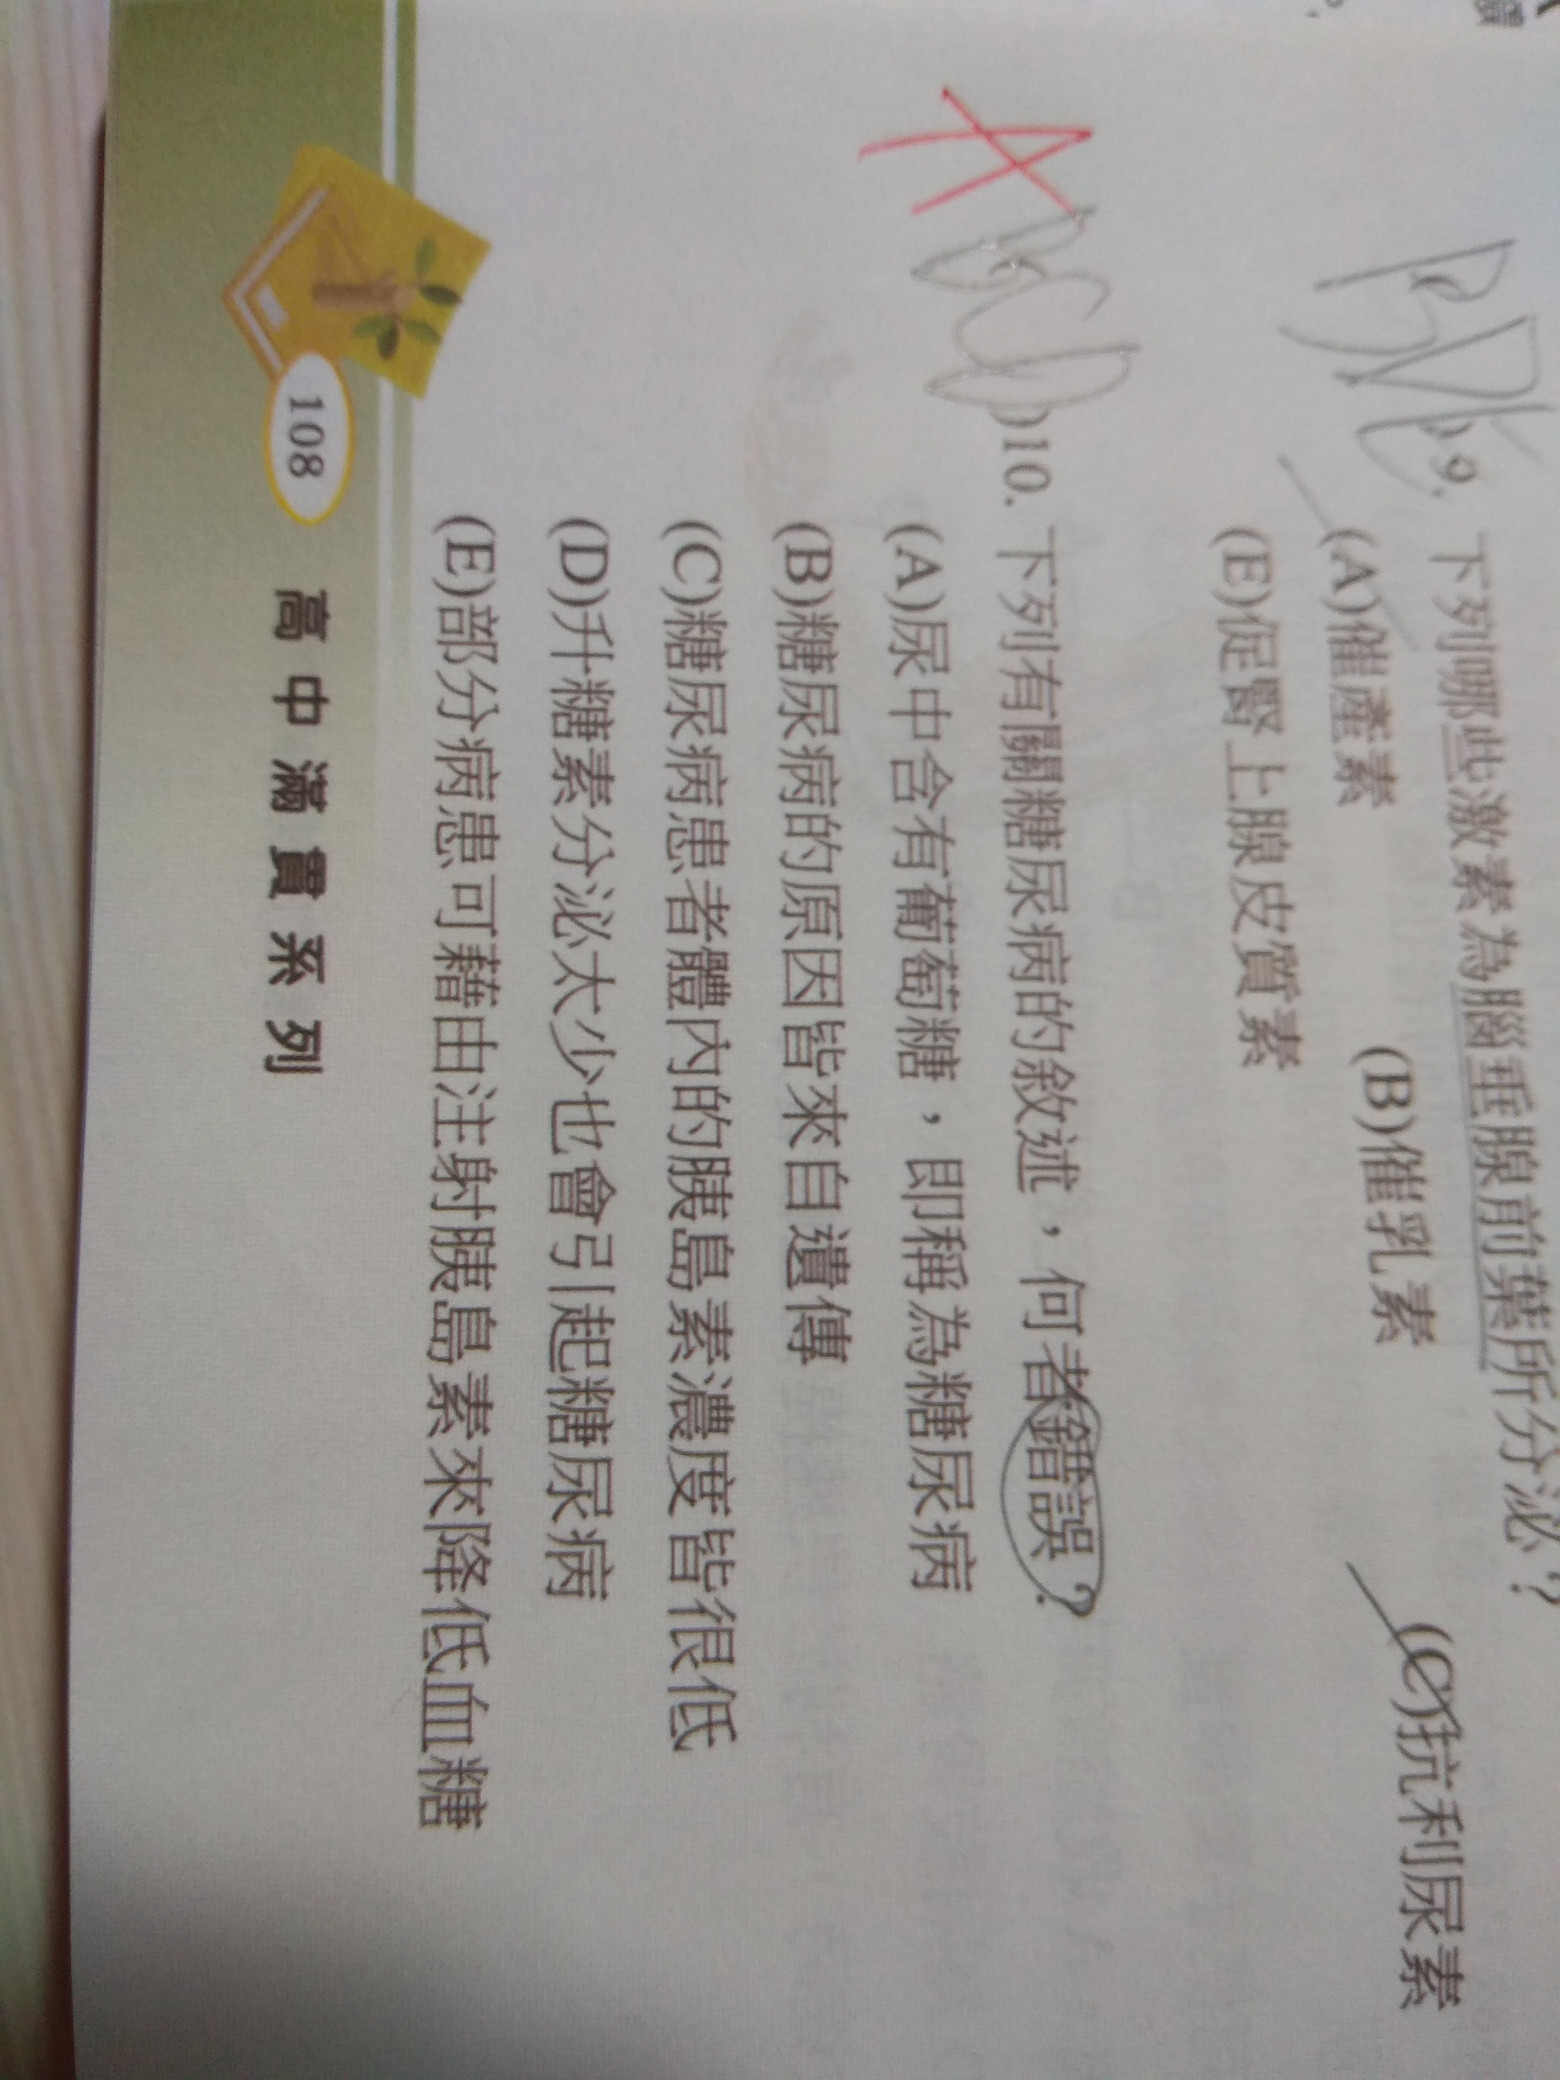 BDE
9. 下列哪些激素為腦垂腺前葉所分泌?
(A)催產素 (B)催乳素 (C)抗利尿素
(E)促腎上腺皮質素
A
BCD
)10. 下列有關糖尿病的敘述,何者錯誤?
(A)尿中含有葡萄糖,即稱為糖尿病
(B)糖尿病的原因皆來自遺傳
(C)糖尿病患者體內的胰島素濃度皆很低
(D)升糖素分泌太少也會引起糖尿病
(E)部分病患可藉由注射胰島素來降低血糖
108 高中滿貫系列